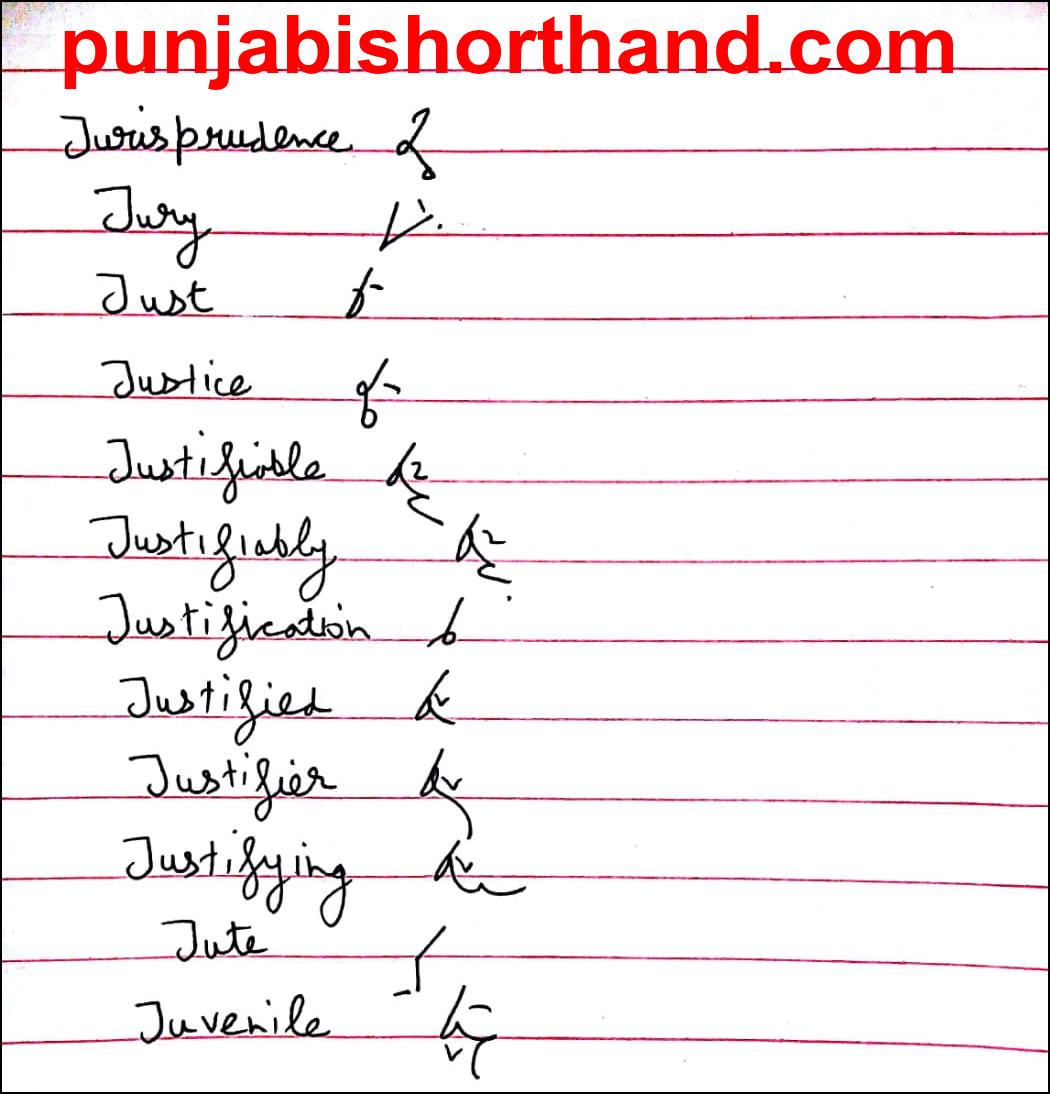 punjabishorthand.com
Jurisprudence
Jury
Just
Justice
Justifiable
Justifiably
Justification
Justified
Justifier
Justifying
Jute
Juvenile